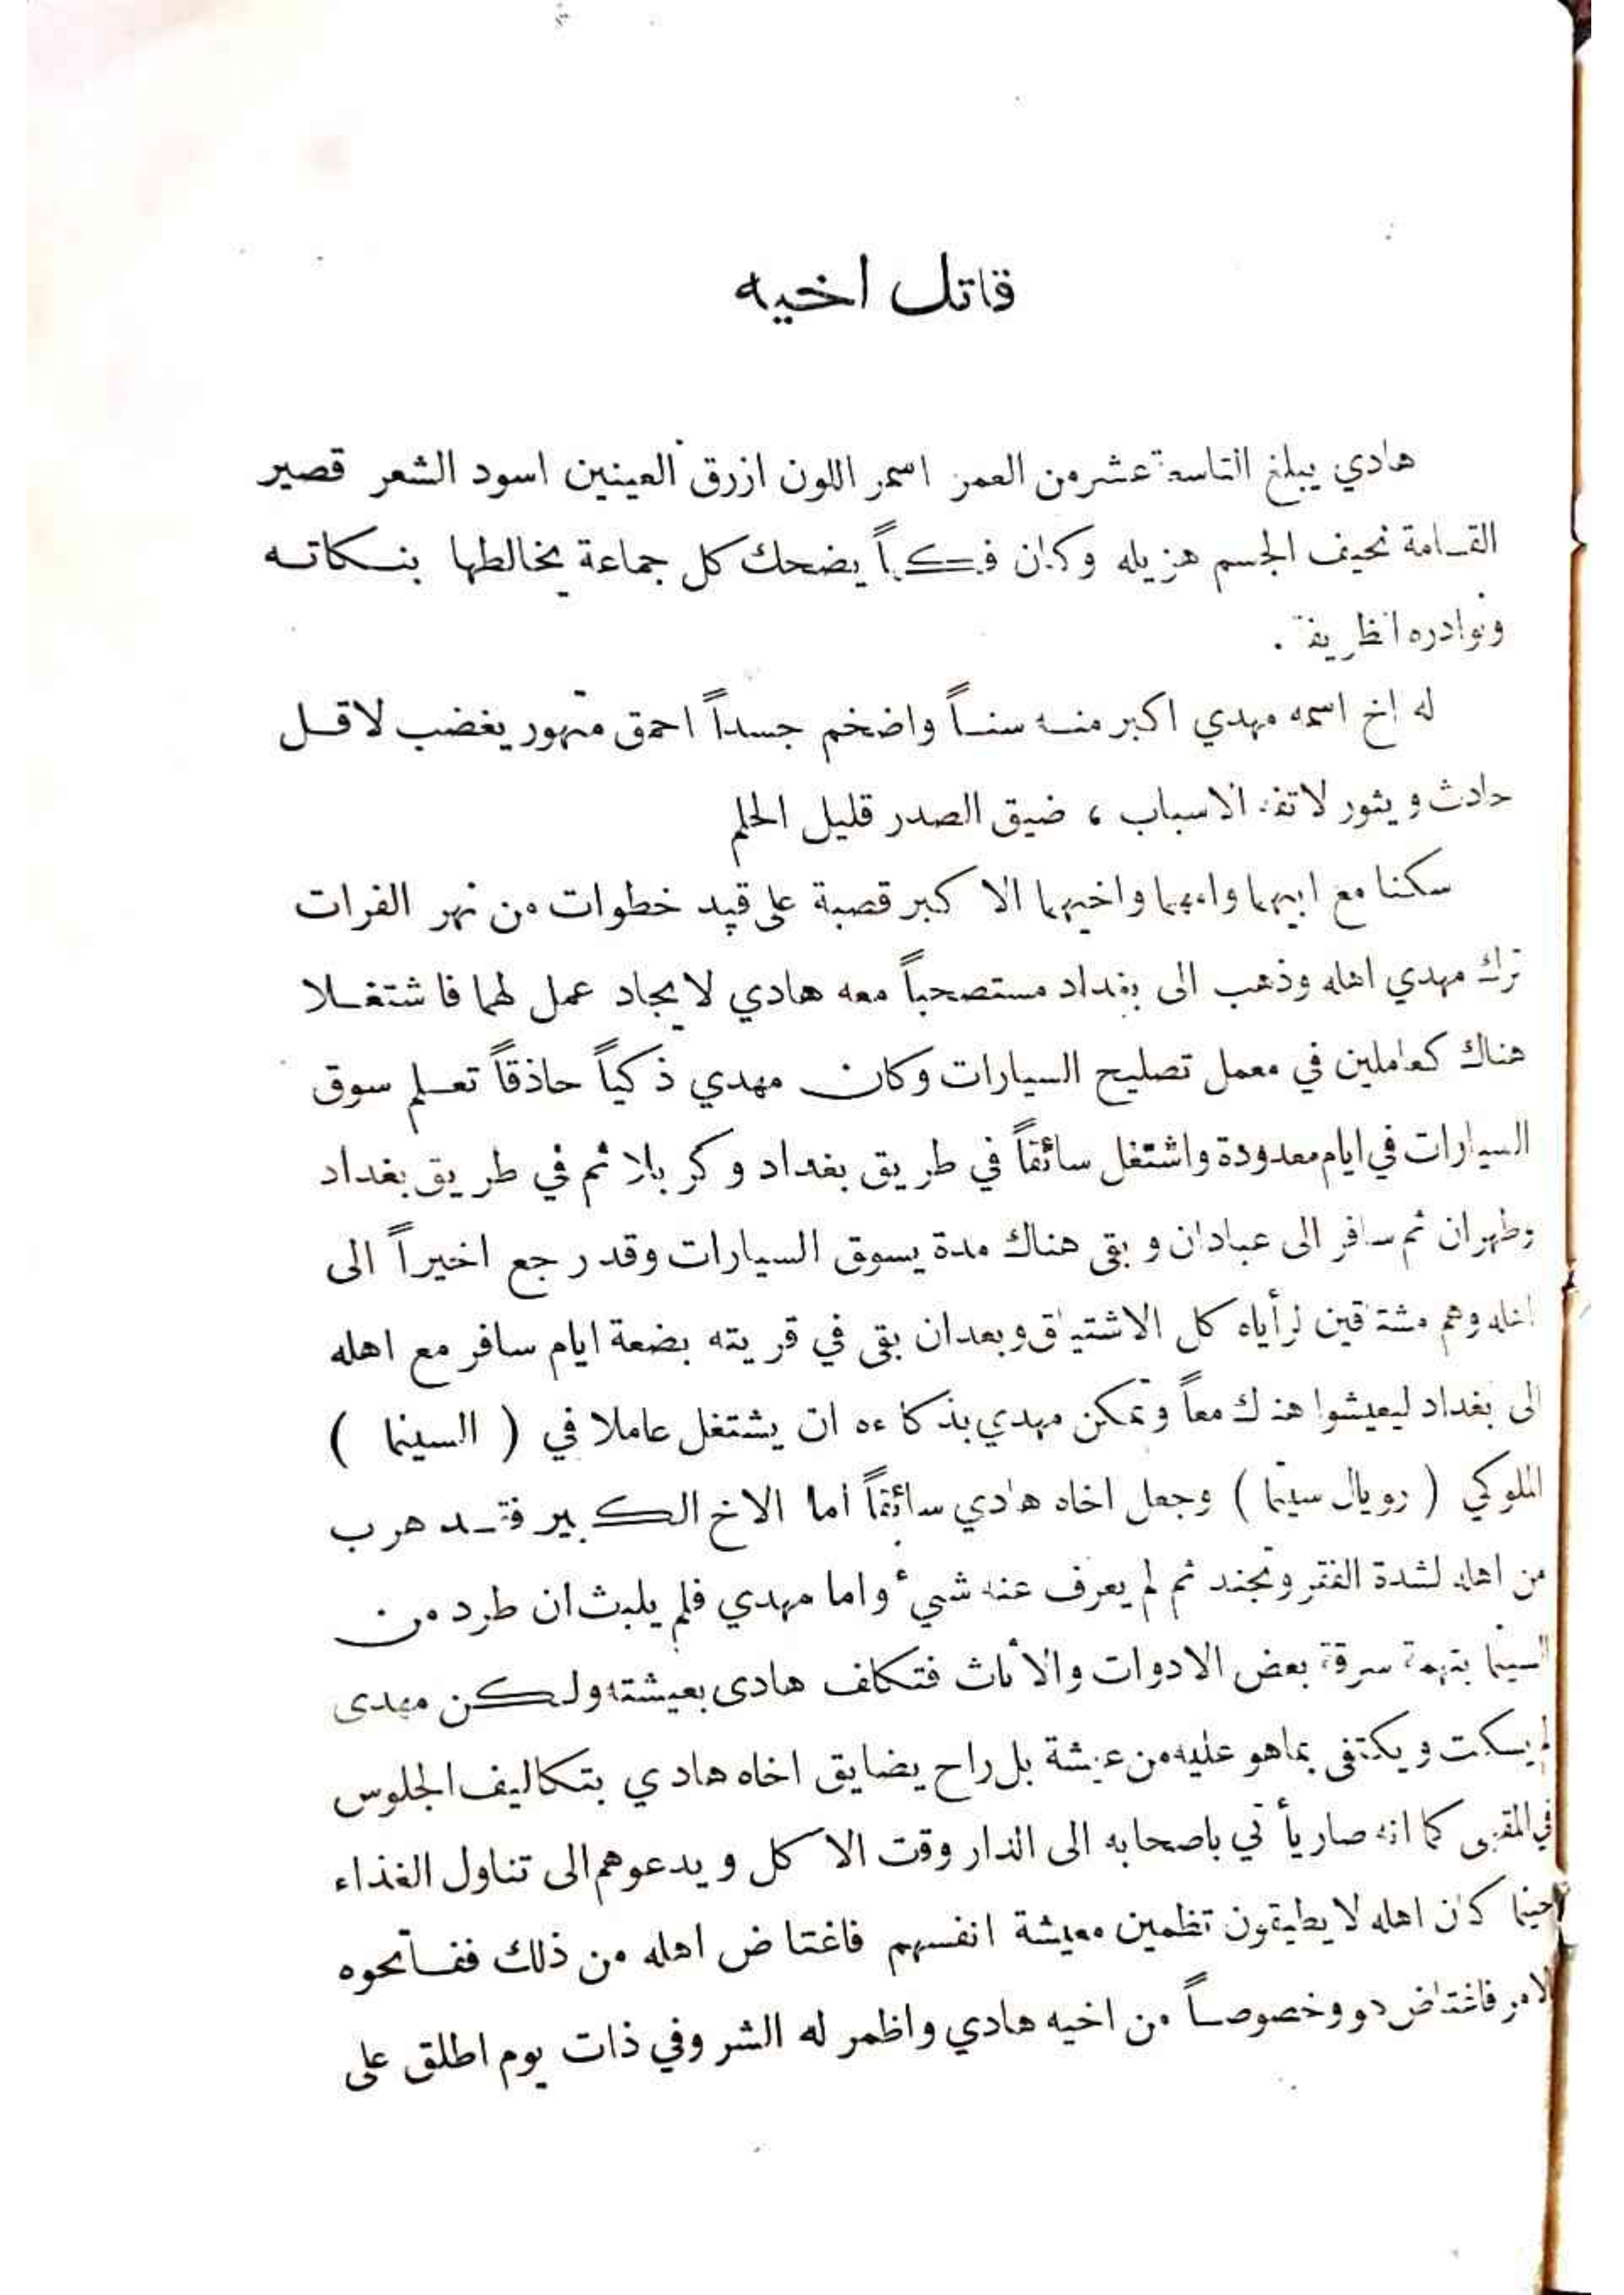 قاتل اخيه
هادي يبلغ التاسعة عشر من العمر اسمر اللون ازرق العينين اسود الشعر قصير
القامة نحيف الجسم هزيله وكان فكهاً يضحك كل جماعة يخالطها بنكاته
ونوادره الظريفة .
له اخ اسمه مهدي اكبر منه سناً واضخم جسداً احمق متهور يغضب لاقل
حادث ويثور لاتفه الاسباب ، ضيق الصدر قليل الحلم
سكنا مع ابيهما وامهما واخيهما الاكبر قصبة على قيد خطوات من نهر الفرات
ترك مهدي اهله وذهب الى بغداد مستصحباً معه هادي لايجاد عمل لهما فاشتغلا
هناك كعاملين في معمل تصليح السيارات وكان مهدي ذكياً حاذقاً تعلم سوق
السيارات في ايام معدودة واشتغل سائقاً في طريق بغداد وكربلا ثم في طريق بغداد
وطهران ثم سافر الى عبادان وبقى هناك مدة يسوق السيارات وقد رجع اخيراً الى
اهله وهم مشتاقين لرأياه كل الاشتياق وبعد ان بقى في قريته بضعة ايام سافر مع اهله
الى بغداد ليعيشوا هناك معاً وتمكن مهدي بذكاءه ان يشتغل عاملا في ( السينما )
الملوكي ( رويال سينما ) وجعل اخاه هادي سائقاً اما الاخ الكبير فقد هرب
من اهله لشدة الفقر وتجند ثم لم يعرف عنه شيء واما مهدي فلم يلبث ان طرد من
السينما بتهمة سرقة بعض الادوات والأثاث فتكلف هادى بعيشته ولكن مهدى
لم يسكت ويكتفى بما هو عليه من عيشة بل راح يضايق اخاه هادي بتكاليف الجلوس
في المقهى كما انه صار يأتي باصحابه الى الدار وقت الاكل ويدعوهم الى تناول الغذاء
حينما كان اهله لا يطيقون تظمين معيشة انفسهم فاغتاض اهله من ذلك ففاتحوه
الامر فاغتاض هو وخصوصاً من اخيه هادي واظمر له الشر وفي ذات يوم اطلق على